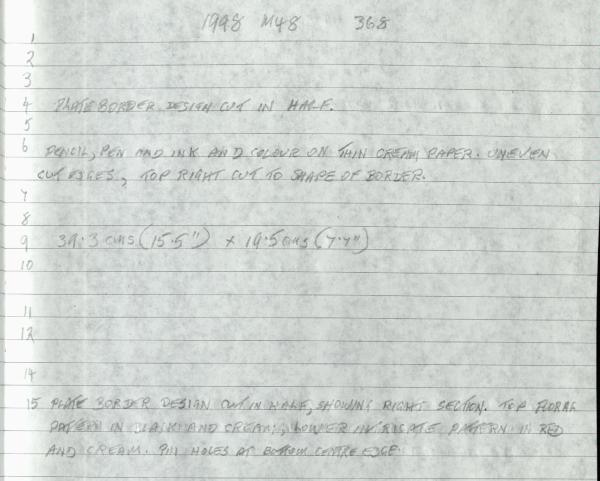 1998 M48 368
1
2
3
4 PLATE BORDER DESIGN CUT IN HALF.
5
6 PENCIL, PEN AND INK AND COLOUR ON THIN CREAM PAPER. UNEVEN
CUT EDGES, TOP RIGHT CUT TO SHAPE OF BORDER.
7
8
9 39.3 cms (15.5") x 19.5 cms (7.7")
10
11
12
14
15 PLATE BORDER DESIGN CUT IN HALF, SHOWING RIGHT SECTION. TOP FLORAL
PATTERN IN BLACK AND CREAM, LOWER INTRICATE PATTERN IN RED
AND CREAM. PIN HOLES AT BOTTOM CENTRE EDGE.